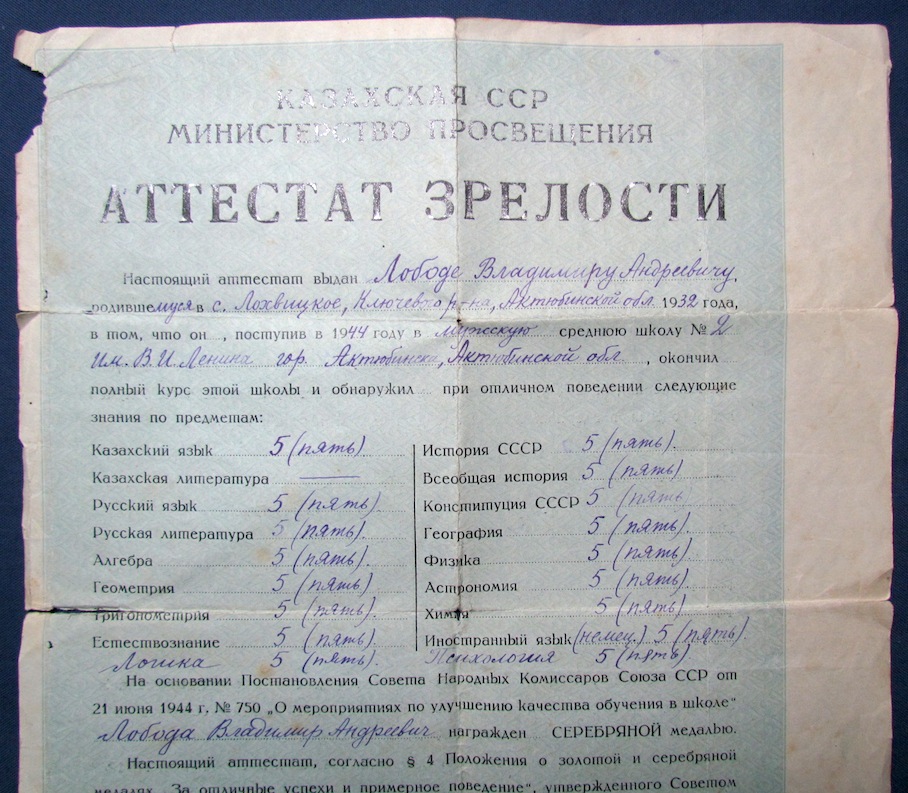 КАЗАХСКАЯ ССР
МИНИСТЕРСТВО ПРОСВЕЩЕНИЯ
АТТЕСТАТ ЗРЕЛОСТИ
Настоящий аттестат выдан Лободе Владимиру Андреевичу,
родившемуся в с. Лохвицкое, Ключевого р-на, Актюбинской обл. 1932 года,
в том, что он , поступив в 1944 году в мужскую среднюю школу № 2
им. В. И. Ленина гор. Актюбинска, Актюбинской обл , окончил
полный курс этой школы и обнаружил при отличном поведении следующие
знания по предметам:
Казахский язык 5 (пять) История СССР 5 (пять).
Казахская литература — Всеобщая история 5 (пять)
Русский язык 5 (пять). Конституция СССР 5 (пять)
Русская литература 5 (пять). География 5 (пять).
Алгебра 5 (пять). Физика 5 (пять).
Геометрия 5 (пять). Астрономия 5 (пять).
Тригонометрия 5 (пять). Химия 5 (пять)
Естествознание 5 (пять). Иностранный язык (немец.) 5 (пять).
Логика 5 (пять). Психология 5 (пять)
На основании Постановления Совета Народных Комиссаров Союза ССР от
21 июня 1944 г. № 750 „О мероприятиях по улучшению качества обучения в школе"
Лобода Владимир Андреевич награжден СЕРЕБРЯНОЙ медалью.
Настоящий аттестат, согласно § 4 Положения о золотой и серебряной
медалях „За отличные успехи и примерное поведение", утвержденного Советом